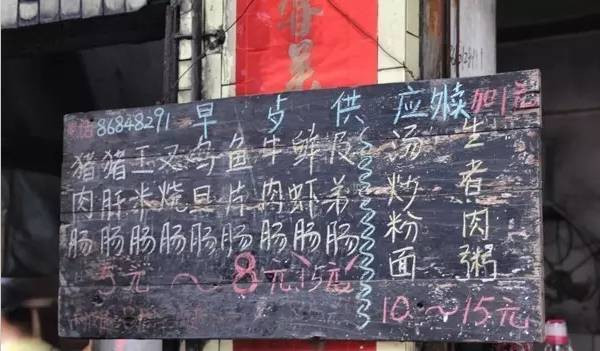 电话86848291 早歺供应 加1元
猪肉肠
猪肝肠
玉米肠
叉烧肠
鸟旦肠
鱼片肠
牛肉肠
鲜虾肠
及弟肠
5元~8元~15元
汤炒粉面
生煮肉粥
10~15元